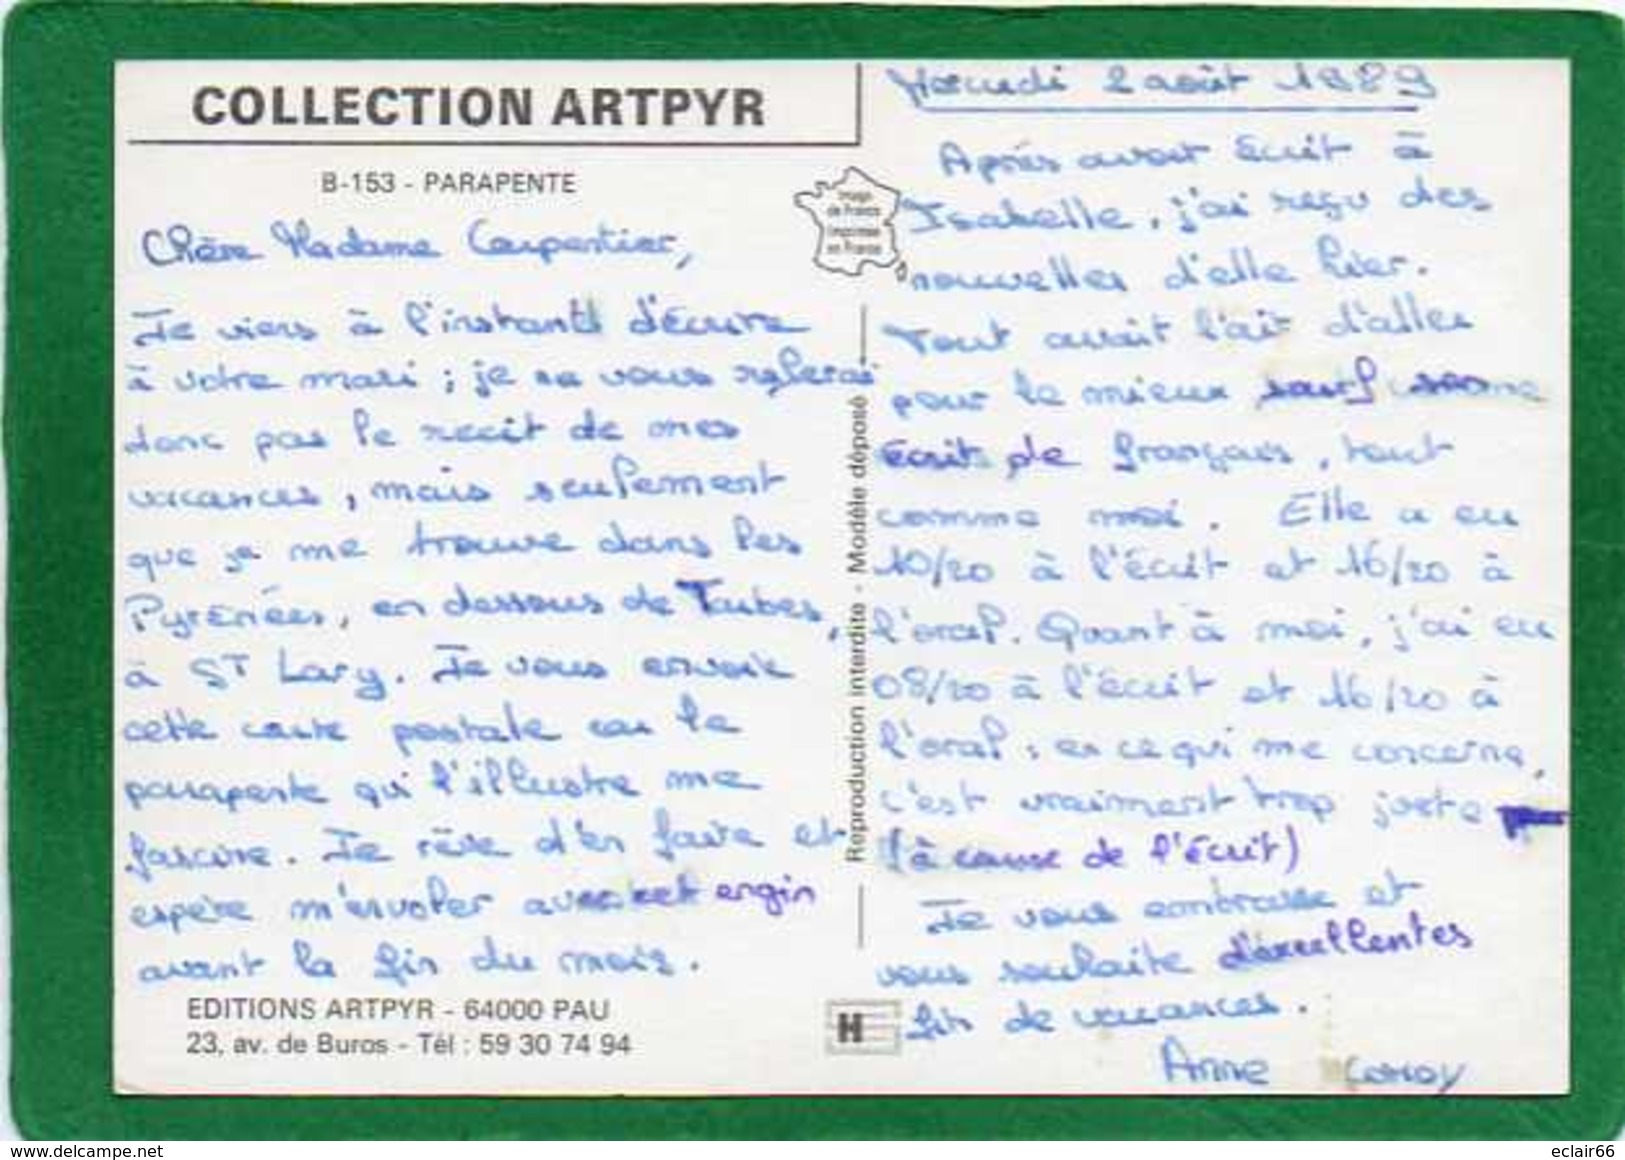 COLLECTION ARTPYR
B-153 - PARAPENTE
Chère Madame Carpentier,
Je viens à l'instant d'écrire
à votre mari ; je ne vous referai
donc pas le récit de mes
vacances, mais seulement
que je me trouve dans les
Pyrénées, en dessous de Tarbes,
à St Lary. Je vous envoie
cette carte postale car le
parapente qui l'illustre me
fascine. Je rêve d'en faire et
espère m'envoler avec cet engin
avant la fin du mois.
EDITIONS ARTPYR - 64000 PAU
23, av. de Buros - Tél : 59 30 74 94
Image
de France
imprimée
en France
Reproduction interdite - Modèle déposé
H
Mercredi 2 août 1989
Après avoir écrit à
Isabelle, j'ai reçu des
nouvelles d'elle hier.
Tout avait l'air d'aller
pour le mieux sauf
écrit de français, tout
comme moi. Elle a eu
10/20 à l'écrit et 16/20 à
l'oral. Quant à moi, j'ai eu
08/20 à l'écrit et 16/20 à
l'oral ; en ce qui me concerne,
c'est vraiment trop juste
(à cause de l'écrit)
Je vous embrasse et
vous souhaite d'excellentes
fin de vacances.
Anne
eclair66